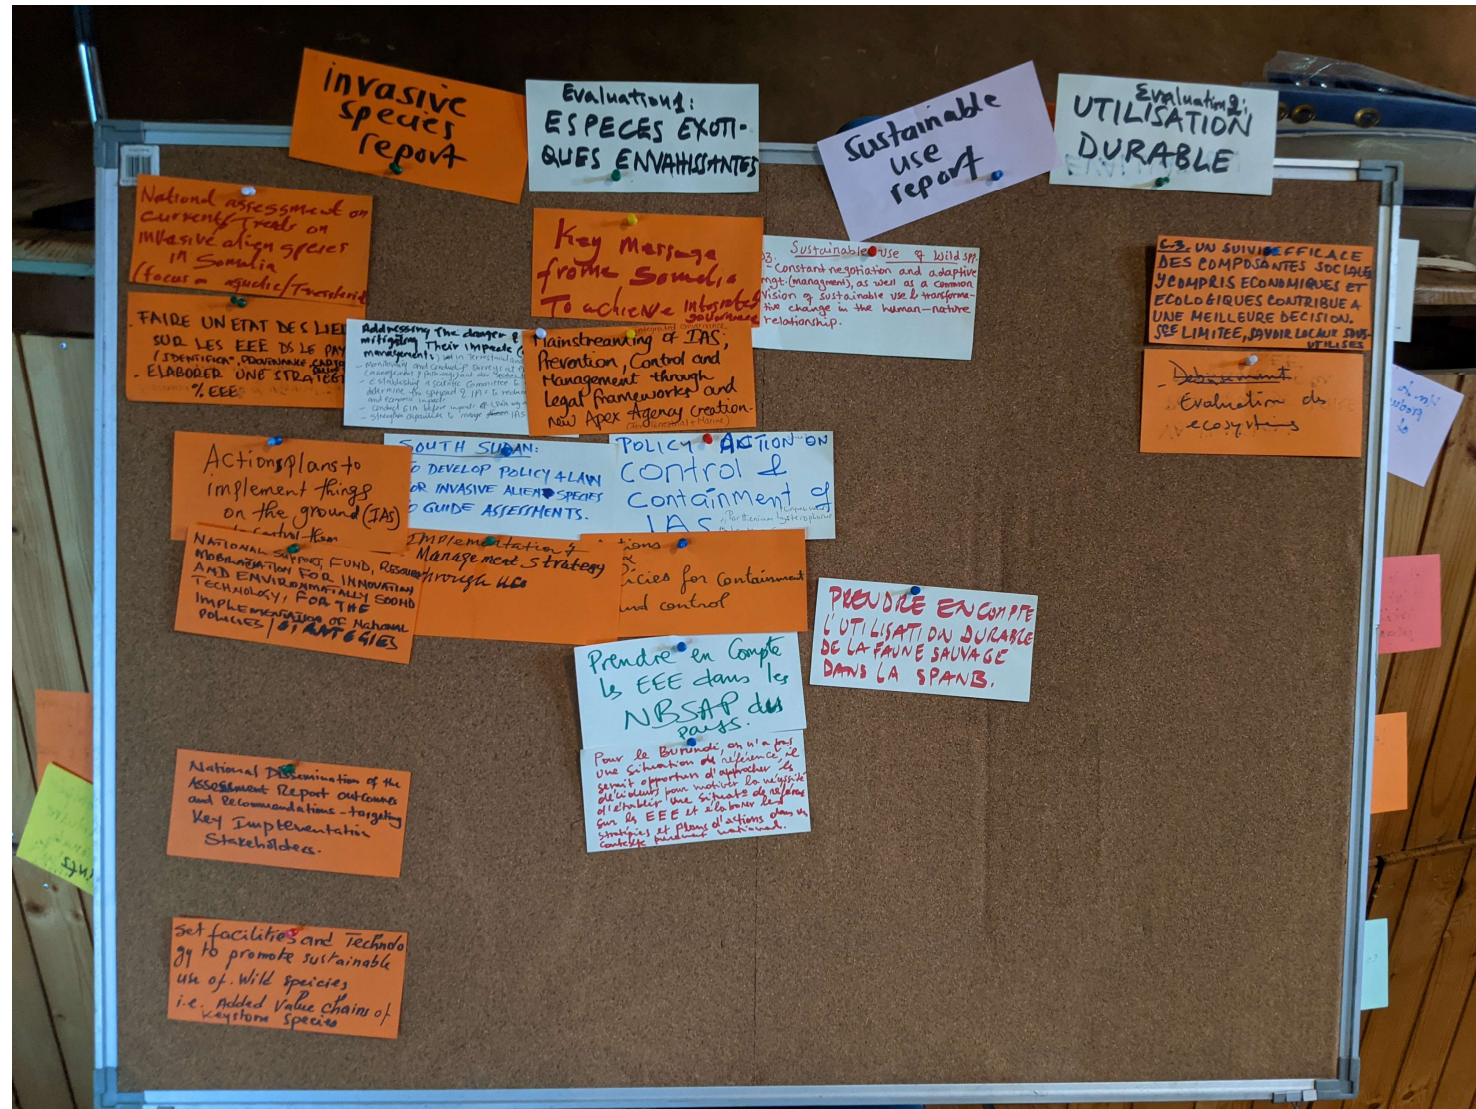 invasive
species
report
Evaluation 1:
ESPECES EXOTI-
QUES ENVAHISSANTES
Sustainable
use
report
Evaluation 2:
UTILISATION
DURABLE
National assessment on
current/Trends on
invasive align species
in Somalia
(focus on aquatic/Terrestrial
- FAIRE UN ETAT DES LIEU
SUR LES EEE DS LE PAY
- ELABORER UNE STRATEG
% EEE
Addressing the danger &
mitigating Their Impacts
management:
- establishing a scientific Committee to
determine the spread of IAS
and economic impact
Key Message
frome Somalia
To achieve integrated
governance
Mainstreaming of IAS,
Prevention, Control and
Management through
Legal frameworks and
new Apex Agency creation.
(Terrestrial + Marine)
Sustainable Use of Wild SPP.
- Constant negotiation and adaptive
mgt. (managment), as well as a common
Vision of sustainable use & transforma-
tive change in the human-nature
relationship.
C.3. UN SUIVI EFFICALE
DES COMPOSANTES SOCIALES
Y COMPRIS ECONOMIQUES ET
ECOLOGIQUES CONTRIBUE A
UNE MEILLEURE DECISION.
LIMITEE, SAVOIR LOCAUX SOUS-
UTILISES
- Evaluation des
ecosystems
Actions plans to
implement things
on the ground (IAS)
to control them
SOUTH SUDAN:
TO DEVELOP POLICY & LAW
FOR INVASIVE ALIEN SPECIES
TO GUIDE ASSESSMENTS.
POLICY ACTION ON
control &
containment of
IAS
Parthenium hysterophorus
NATIONAL SUPPORT, FUND, RESOUR
MOBILIZATION FOR INNOVATION
AND ENVIRONMATIALLY SOUND
TECHNOLOGY, FOR THE
IMPLEMENTATION OF NATIONAL
POLICIES / STRATEGIES
Implementation of
Management Strategy
through
tions
icies for containment
and control
PRENDRE EN COMPTE
L'UTILISATION DURABLE
DE LA FAUNE SAUVAGE
DANS LA SPANB.
Prendre en Compte
les EEE dans les
NBSAP des
pays.
Pour le Burundi, on n'a pas
une situation de référence, il
serait opportun d'approcher les
décideurs pour motiver la nécessité
d'établir une situat° de référence
sur les EEE et élaborer les
stratégies et plans d'actions dans un
contexte purement national.
National Dissemination of the
Assessment Report outcomes
and Recommendations - targeting
Key Implementation
Stakeholders.
Set facilities and Technolo
gy to promote sustainable
use of Wild speicies
i.e. Added Value chains of
Keystone species